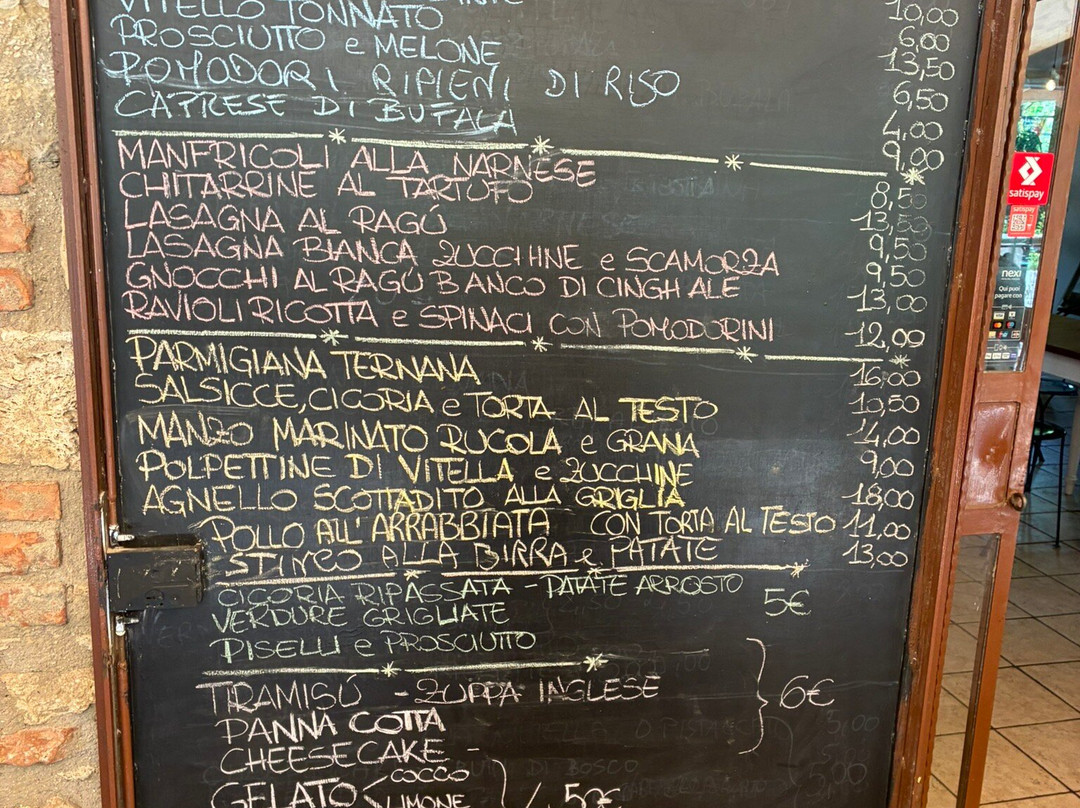 10,00
6,00
VITELLO TONNATO 13,50
PROSCIUTTO e MELONE 6,50
POMODORI RIPIENI DI RISO 4,00
CAPRESE DI BUFALA 9,00
MANFRICOLI ALLA NARNESE 8,50
CHITARRINE AL TARTUFO 13,50
LASAGNA AL RAGÚ 9,50
LASAGNA BIANCA ZUCCHINE e SCAMORZA 9,50
GNOCCHI AL RAGÚ BIANCO DI CINGHIALE 13,00
RAVIOLI RICOTTA e SPINACI CON POMODORINI 12,00
PARMIGIANA TERNANA 16,00
SALSICCE, CICORIA e TORTA AL TESTO 10,50
MANZO MARINATO RUCOLA e GRANA 14,00
POLPETTINE DI VITELLA e ZUCCHINE 9,00
AGNELLO SCOTTADITO ALLA GRIGLIA 18,00
POLLO ALL'ARRABBIATA CON TORTA AL TESTO 11,00
STINCO ALLA BIRRA e PATATE 13,00
CICORIA RIPASSATA - PATATE ARROSTO
VERDURE GRIGLIATE 5€
PISELLI e PROSCIUTTO
TIRAMISÚ - ZUPPA INGLESE 6€
PANNA COTTA
CHEESECAKE -
GELATO COCCO
LIMONE
satispay
satispay
nexi
Qui puoi
pagare con